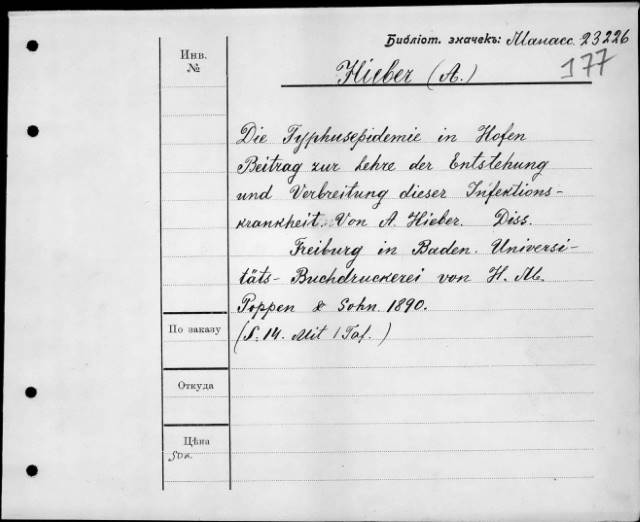 Библіот. значекъ: Манасс. 23226
177
Инв.
№
Hieber (A.)
Die Typhusepidemie in Hofen
Beitrag zur Lehre der Entstehung
und Verbreitung dieser Infektions-
krankheit. Von A. Hieber. Diss.
Freiburg in Baden. Universi-
täts-Buchdruckerei von H. M.
Poppen & Sohn. 1890.
(S. 14. Mit 1 Taf.)
По заказу
Откуда
Цѣна
50к.